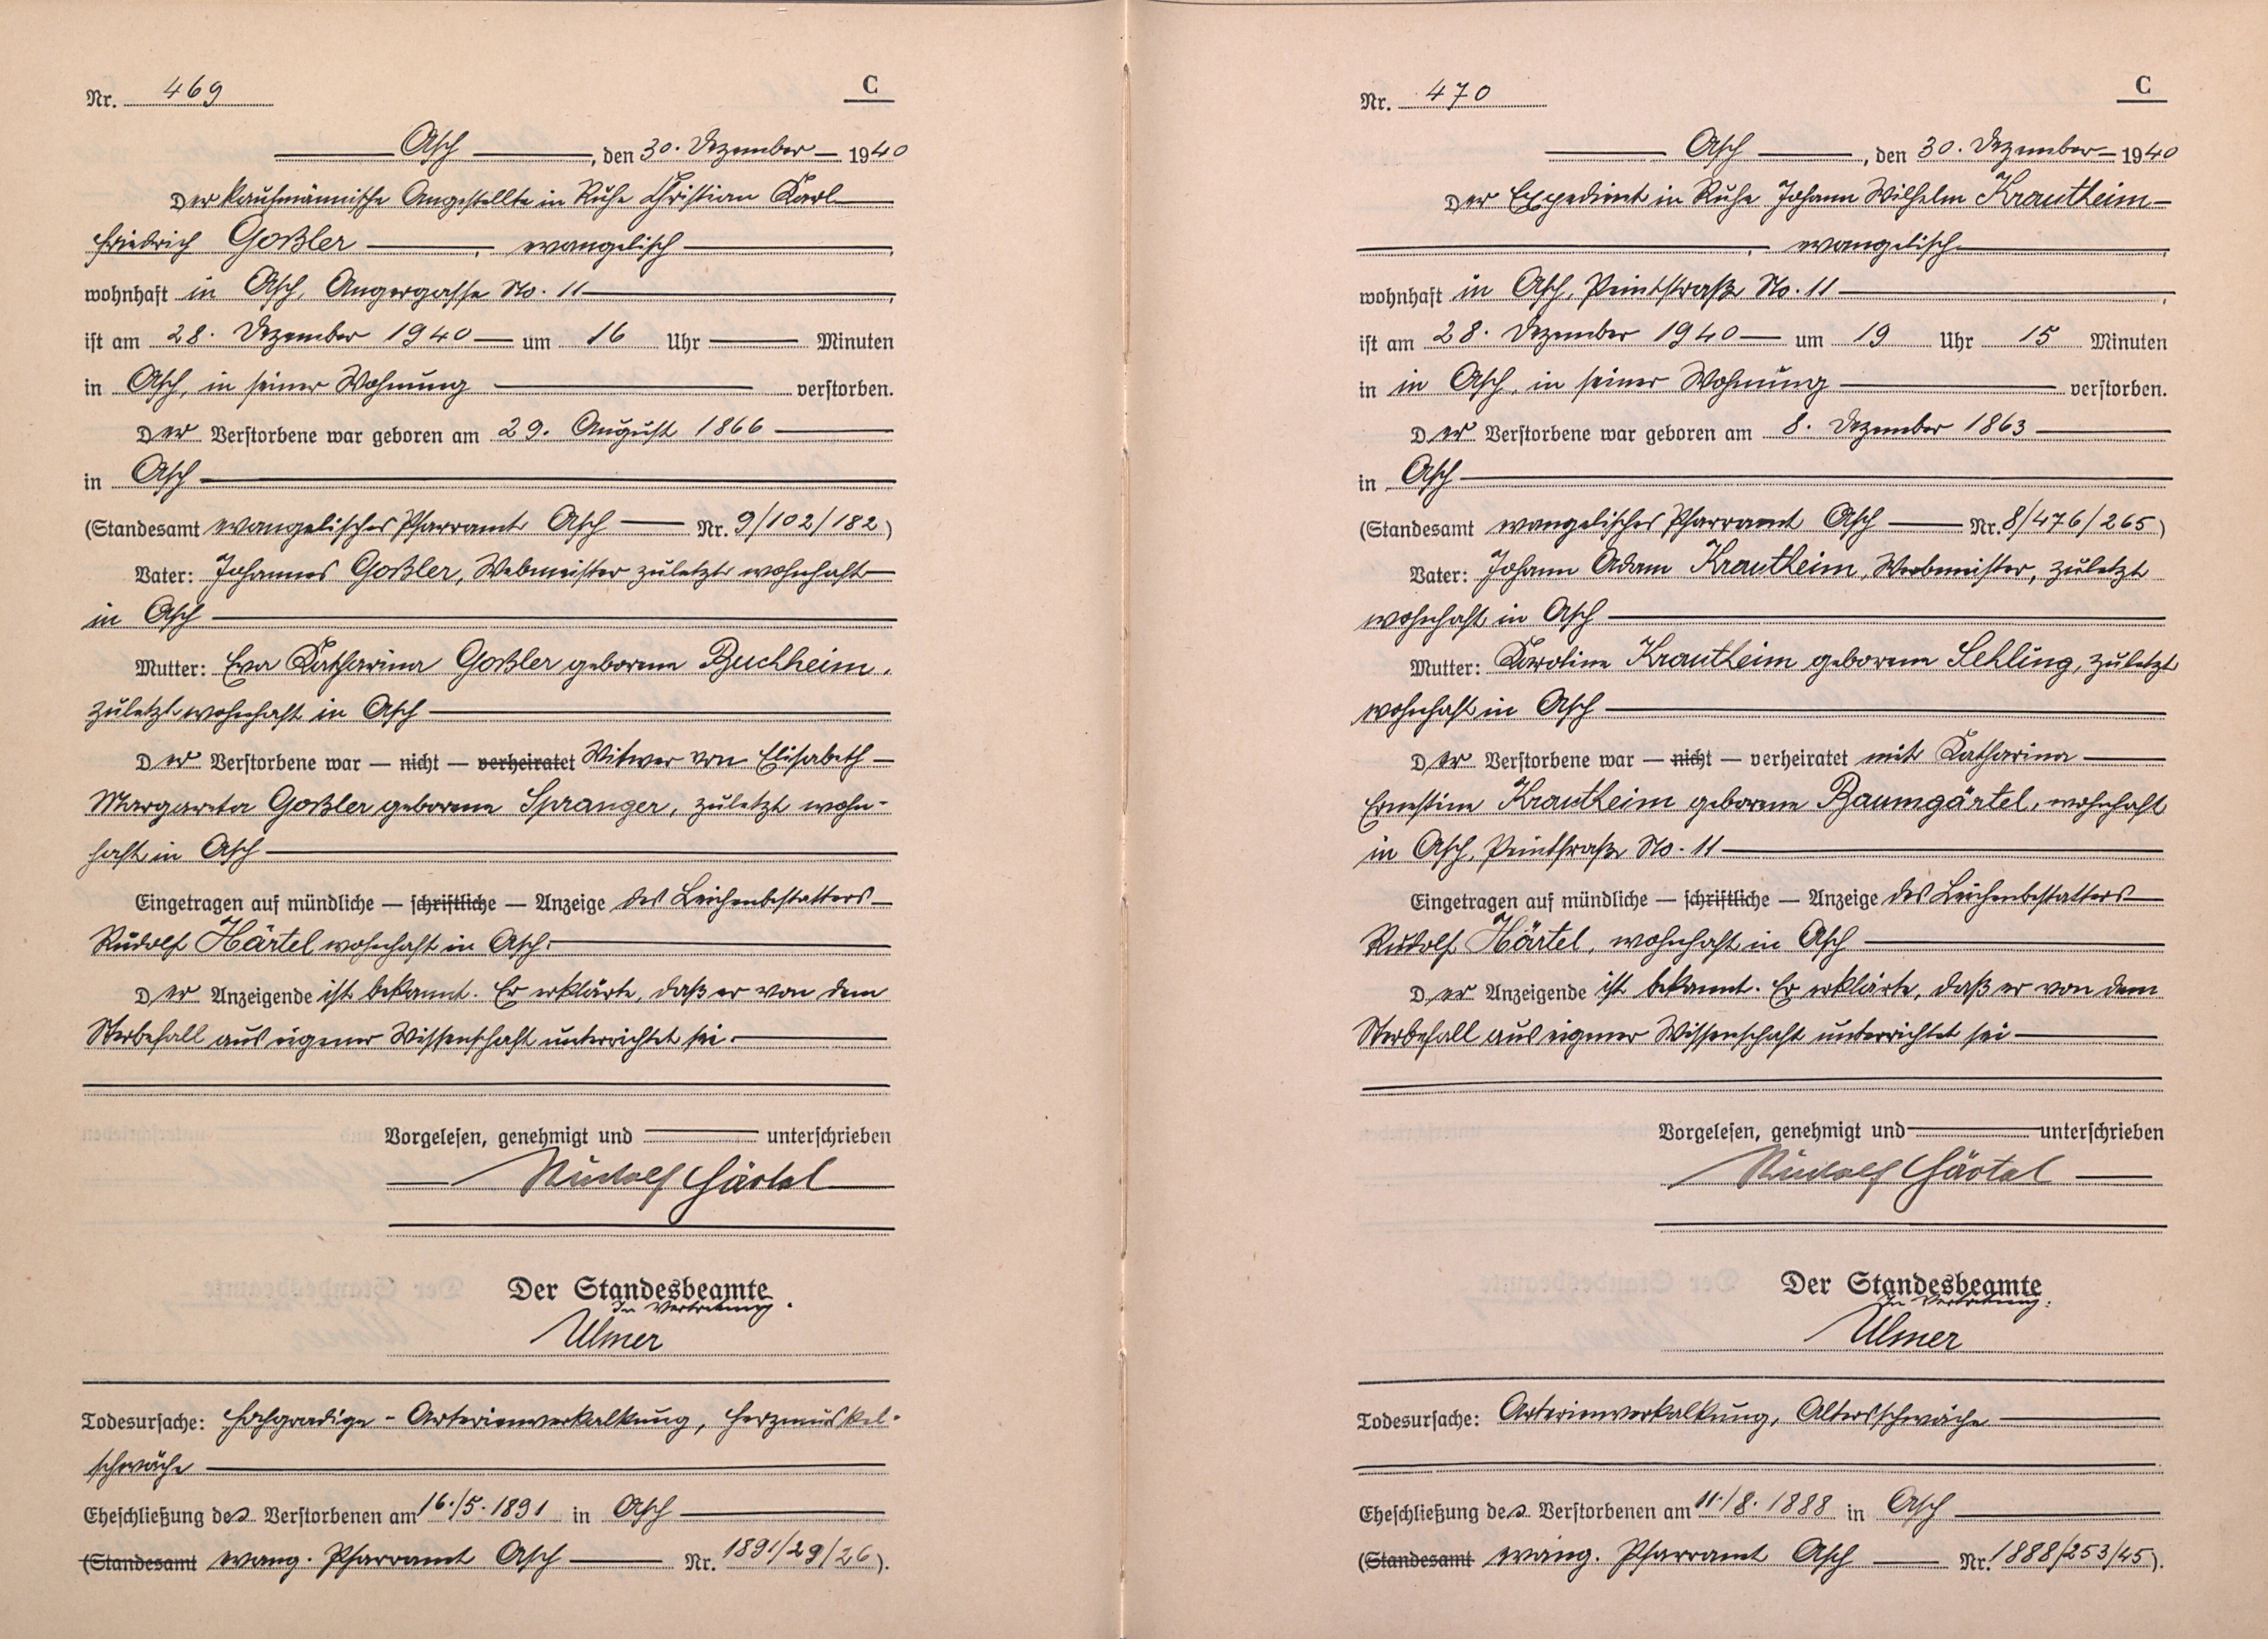 Nr. 469 C
Asch, den 30. Dezember 1940
Der kaufmännische Angestellte in Ruhe Christian Karl
Friedrich Goßler, evangelisch,
wohnhaft in Asch, Angergasse No. 11,
ist am 28. Dezember 1940 um 16 Uhr Minuten
in Asch, in seiner Wohnung verstorben.
Der Verstorbene war geboren am 29. August 1866
in Asch
(Standesamt evangelisches Pfarramt Asch Nr. 9/102/182)
Vater: Johannes Goßler, Webmeister zuletzt wohnhaft
in Asch
Mutter: Eva Katharina Goßler geborene Buchheim,
zuletzt wohnhaft in Asch
Der Verstorbene war — nicht — verheiratet Witwer von Elisabeth
Margareta Goßler geborene Spranger, zuletzt wohn-
haft in Asch
Eingetragen auf mündliche — schriftliche — Anzeige des Leichenbestatters
Rudolf Härtel wohnhaft in Asch.
Der Anzeigende ist bekannt. Er erklärte, daß er von dem
Sterbefall aus eigener Wissenschaft unterrichtet sei.
Vorgelesen, genehmigt und unterschrieben
Rudolf Härtel
Der Standesbeamte
In Vertretung.
Ulmer
Todesursache: Hochgradige - Arterienverkalkung, Herzmuskel-
schwäche
Eheschließung des Verstorbenen am 16./5. 1891 in Asch
(Standesamt evang. Pfarramt Asch Nr. 1891/29/26).
Nr. 470 C
Asch, den 30. Dezember 1940
Der Expedient in Ruhe Johann Wilhelm Krautheim
, evangelisch,
wohnhaft in Asch, Peintstraße No. 11,
ist am 28. Dezember 1940 um 19 Uhr 15 Minuten
in in Asch, in seiner Wohnung verstorben.
Der Verstorbene war geboren am 8. Dezember 1863
in Asch
(Standesamt evangelisches Pfarramt Asch Nr. 8/476/265)
Vater: Johann Adam Krautheim, Webmeister, zuletzt
wohnhaft in Asch
Mutter: Karoline Krautheim geborene Sehling, zuletzt
wohnhaft in Asch
Der Verstorbene war — nicht — verheiratet mit Katharina
Ernestine Krautheim geborene Baumgärtel, wohnhaft
in Asch, Peintstraße No. 11
Eingetragen auf mündliche — schriftliche — Anzeige des Leichenbestatters
Rudolf Härtel, wohnhaft in Asch
Der Anzeigende ist bekannt. Er erklärte, daß er von dem
Sterbefall aus eigener Wissenschaft unterrichtet sei
Vorgelesen, genehmigt und unterschrieben
Rudolf Härtel
Der Standesbeamte
In Vertretung:
Ulmer
Todesursache: Arterienverkalkung, Altersschwäche
Eheschließung des Verstorbenen am 11./8. 1888 in Asch
(Standesamt evang. Pfarramt Asch Nr. 1888/253/45).